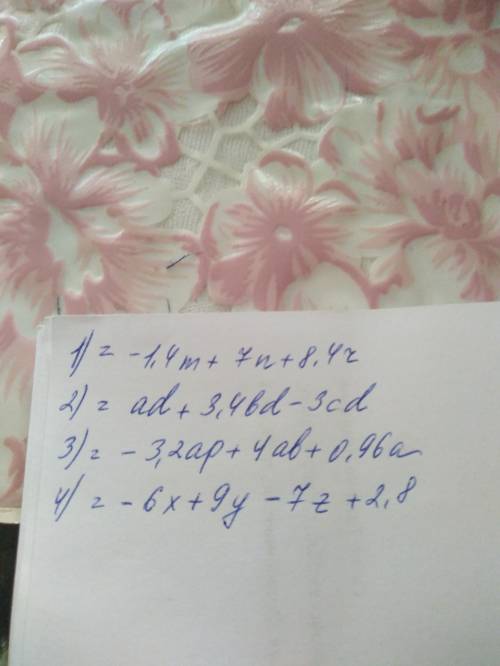 1) = -1,4m + 7n + 8,4r
2) = ad + 3,4bd - 3cd
3) = - 3,2ap + 4ab + 0,96a
4) = - 6x + 9y - 7z + 2,8